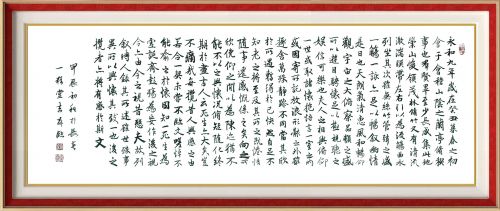 永和九年歲在癸丑暮春之初
會于會稽山陰之蘭亭脩禊
事也群賢畢至少長咸集此地
有崇山峻領茂林脩竹又有清流
激湍暎帶左右引以為流觴曲水
列坐其次雖無絲竹管弦之盛
一觴一詠亦足以暢敘幽情
是日也天朗氣清惠風和暢仰
觀宇宙之大俯察品類之盛
所以遊目騁懷足以極視聽之
娛信可樂也夫人之相與俯仰
一世或取諸懷抱悟言一室之內
或因寄所託放浪形骸之外雖
趣舍萬殊靜躁不同當其欣
於所遇暫得於己快然自足不
知老之將至及其所之既惓情
隨事遷感慨係之矣向之所
欣俛仰之間以為陳迹猶不
能不以之興懷況脩短隨化終
期於盡古人云死生亦大矣豈
不痛哉每攬昔人興感之由
若合一契未嘗不臨文嗟悼不
能喻之於懷固知一死生為虛
誕齊彭殤為妄作後之視
今亦由今之視昔悲夫故列
敘時人錄其所述雖世殊事
異所以興懷其致一也後之
攬者亦將有感於斯文
甲辰初秋於長安